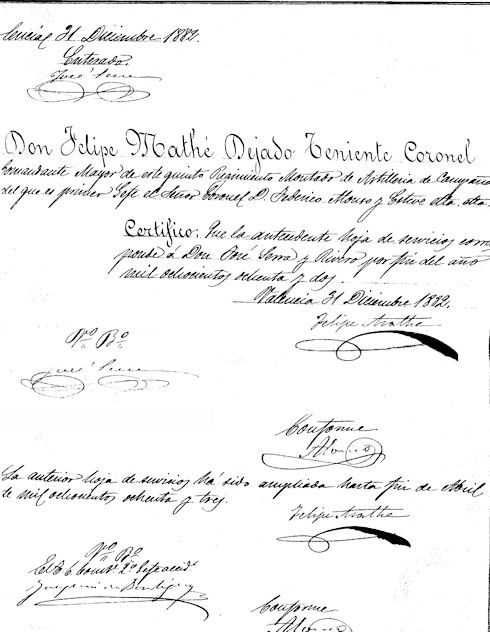 31 Diciembre 1882.
Enterado.
José Serra
Don Felipe Mathé Dejado Teniente Coronel
Comandante Mayor de este quinto Regimiento Montado de Artilleria de Campaña
del que es primer Gefe el Señor Coronel D. Federico Alonso y Esteve
Certifico: Que la antecedente hoja de servicios corres
ponde á Don José Serra y Rivero por fin del año
mil ochocientos ochenta y dos.
Valencia 31 Diciembre 1882.
Felipe Mathé
Vº Bº
José Serra
Conforme
Alonso
La anterior hoja de servicios há sido ampliada hasta fin de Abril
de mil ochocientos ochenta y tres.
Felipe Mathé
Vº Bº
Conforme